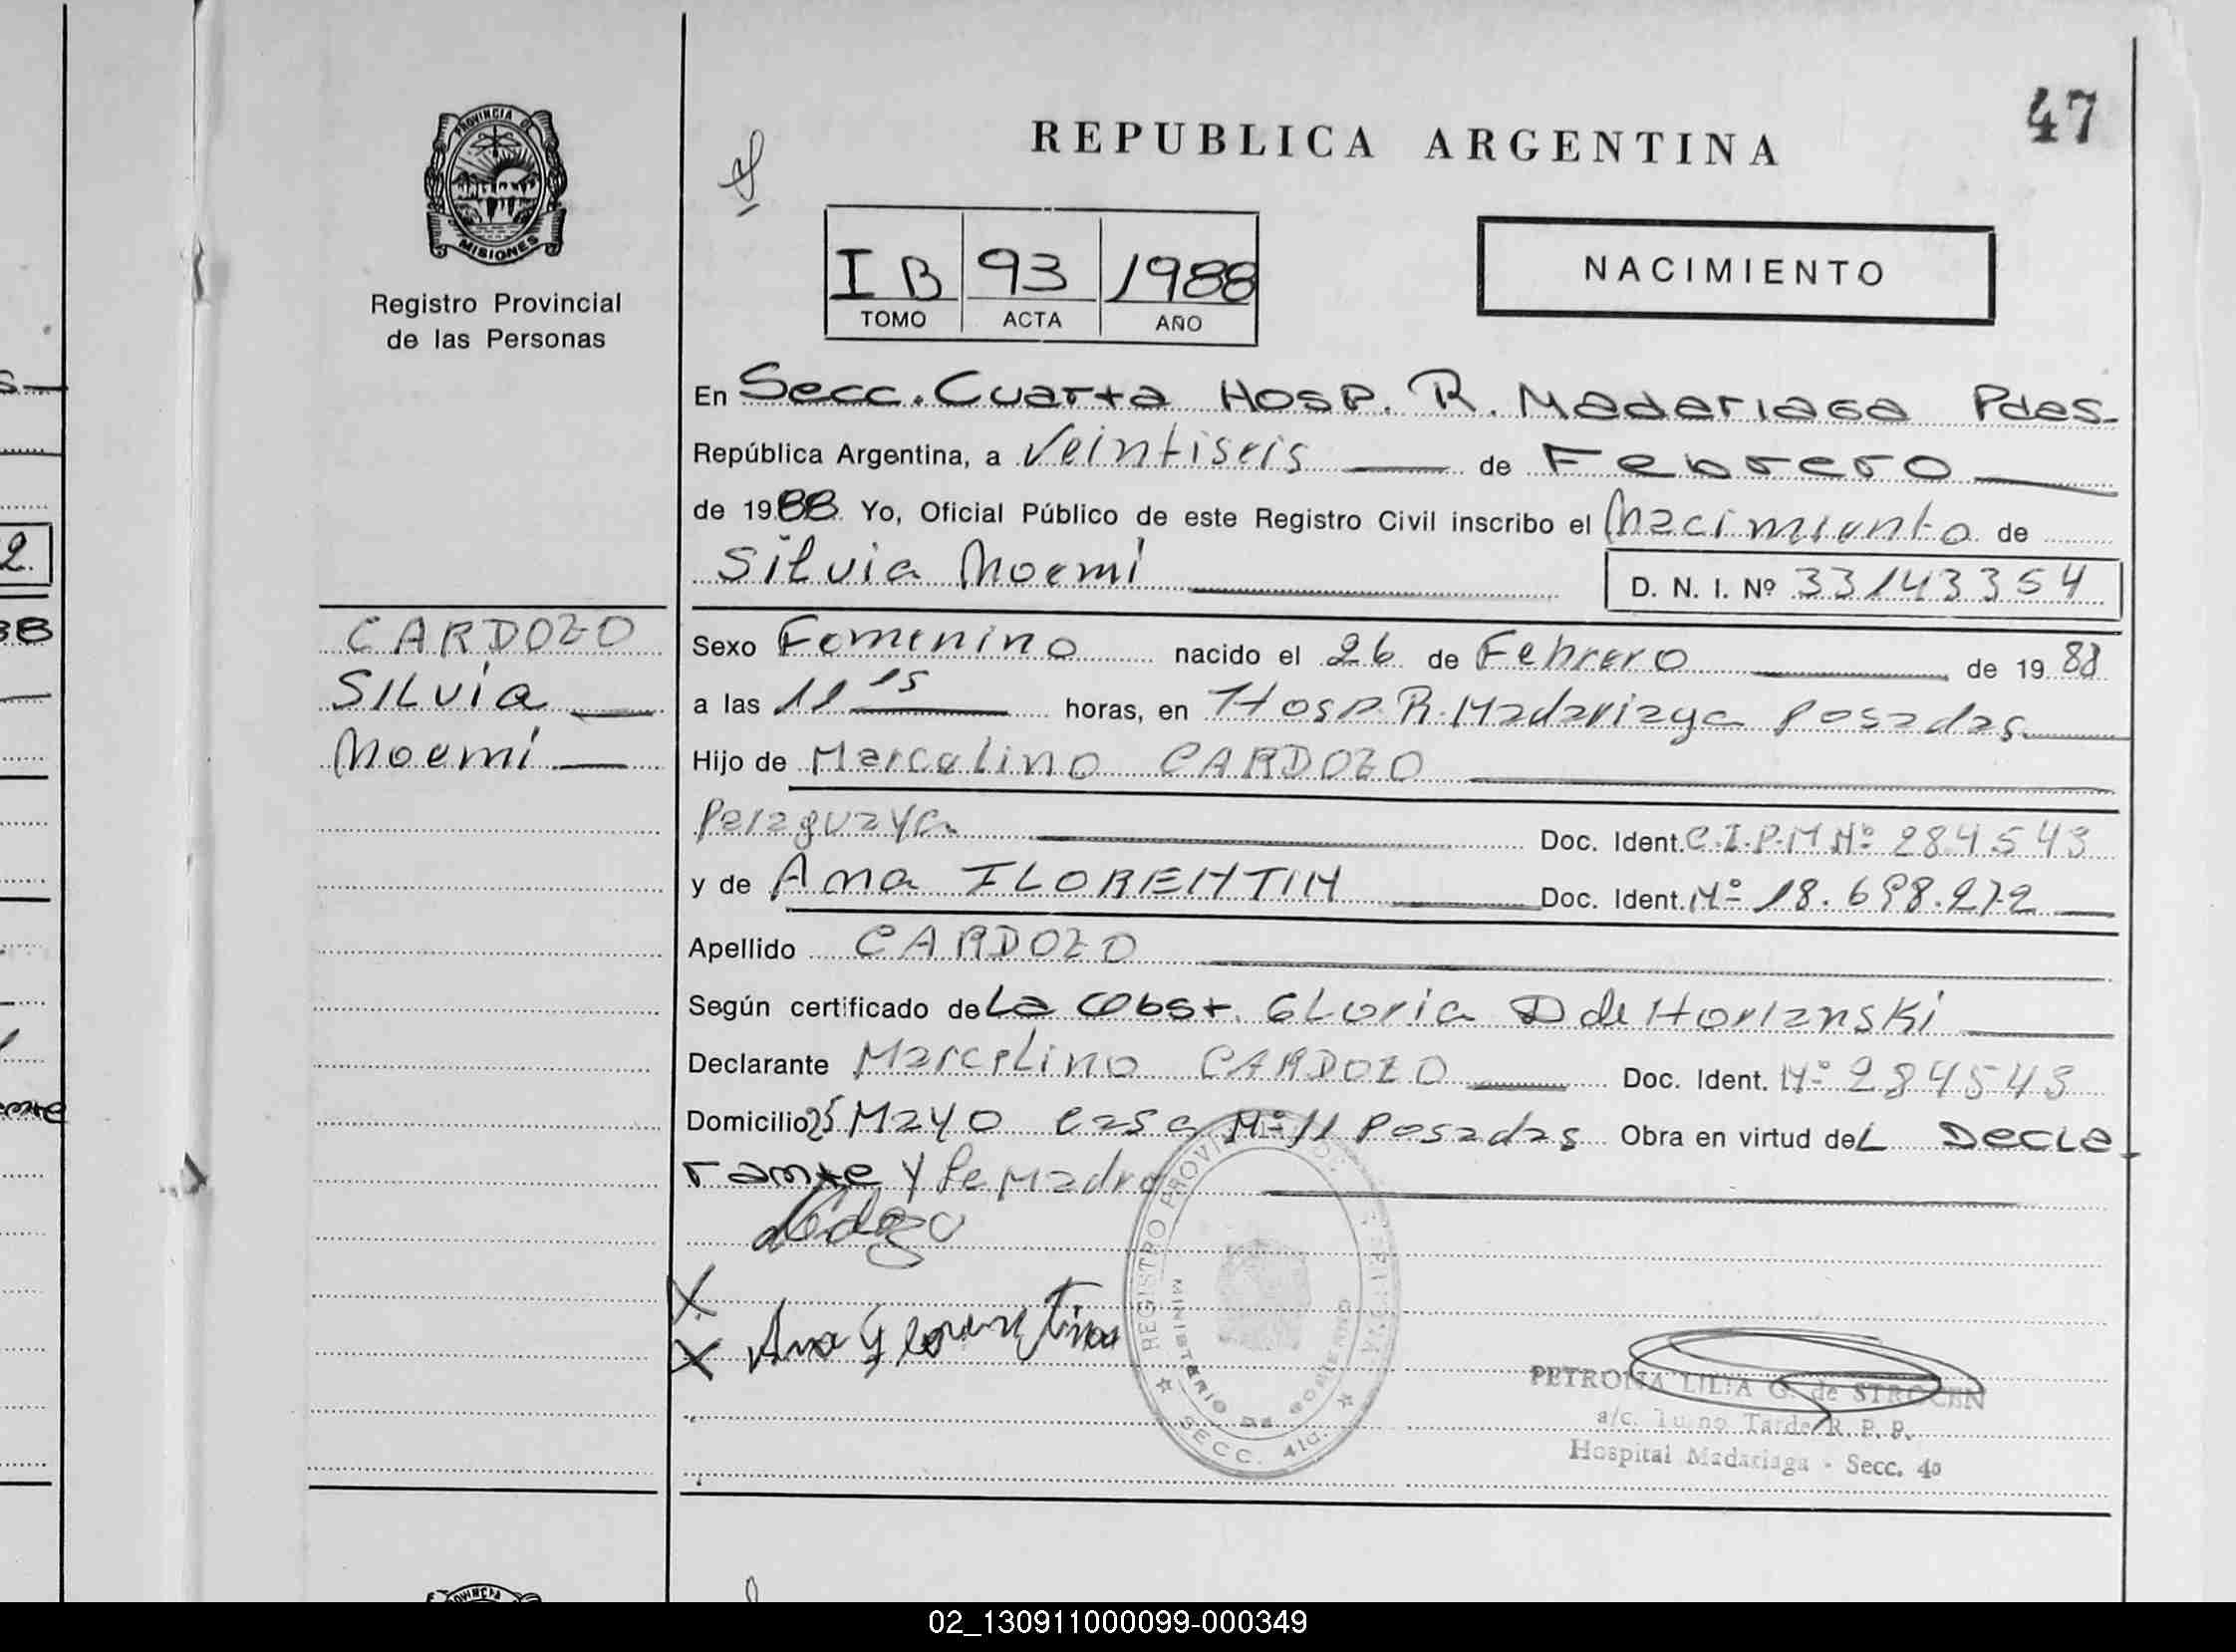 47
REPUBLICA ARGENTINA
PROVINCIA DE
MISIONES
Registro Provincial
de las Personas
I B 93 1988
TOMO ACTA AÑO
NACIMIENTO
En Secc. Cuarta Hosp. R. Madariaga Pdas-
República Argentina, a Veintiseis de Febrero
de 1988 Yo, Oficial Público de este Registro Civil inscribo el Nacimiento de
Silvia Noemi
D. N. I. Nº 33143354
CARDOZO
Silvia
Noemi
Sexo Femenino nacido el 26 de Febrero de 1988
a las 11 15 horas, en Hosp. R. Madariaga Posadas
Hijo de Marcelino CARDOZO
Paraguaya Doc. Ident. C.I.P.M Nº 284543
y de Ana FLORENTIN Doc. Ident. Nº 18.698.272
Apellido CARDOZO
Según certificado de La Obst. Gloria D de Horianski
Declarante Marcelino CARDOZO Doc. Ident. Nº 284543
Domicilio 25 Mayo casa Nº 11 Posadas Obra en virtud del Decla
rante y la Madre
X
X Ana Florentin
REGISTRO PROVINCIAL
MINISTERIO DE GOBIERNO
SECC. 4ta.
PETRONA LILIA G. de STROCEN
a/c. Turno Tarde R. P. P.
Hospital Madariaga - Secc. 4a
02_130911000099-000349